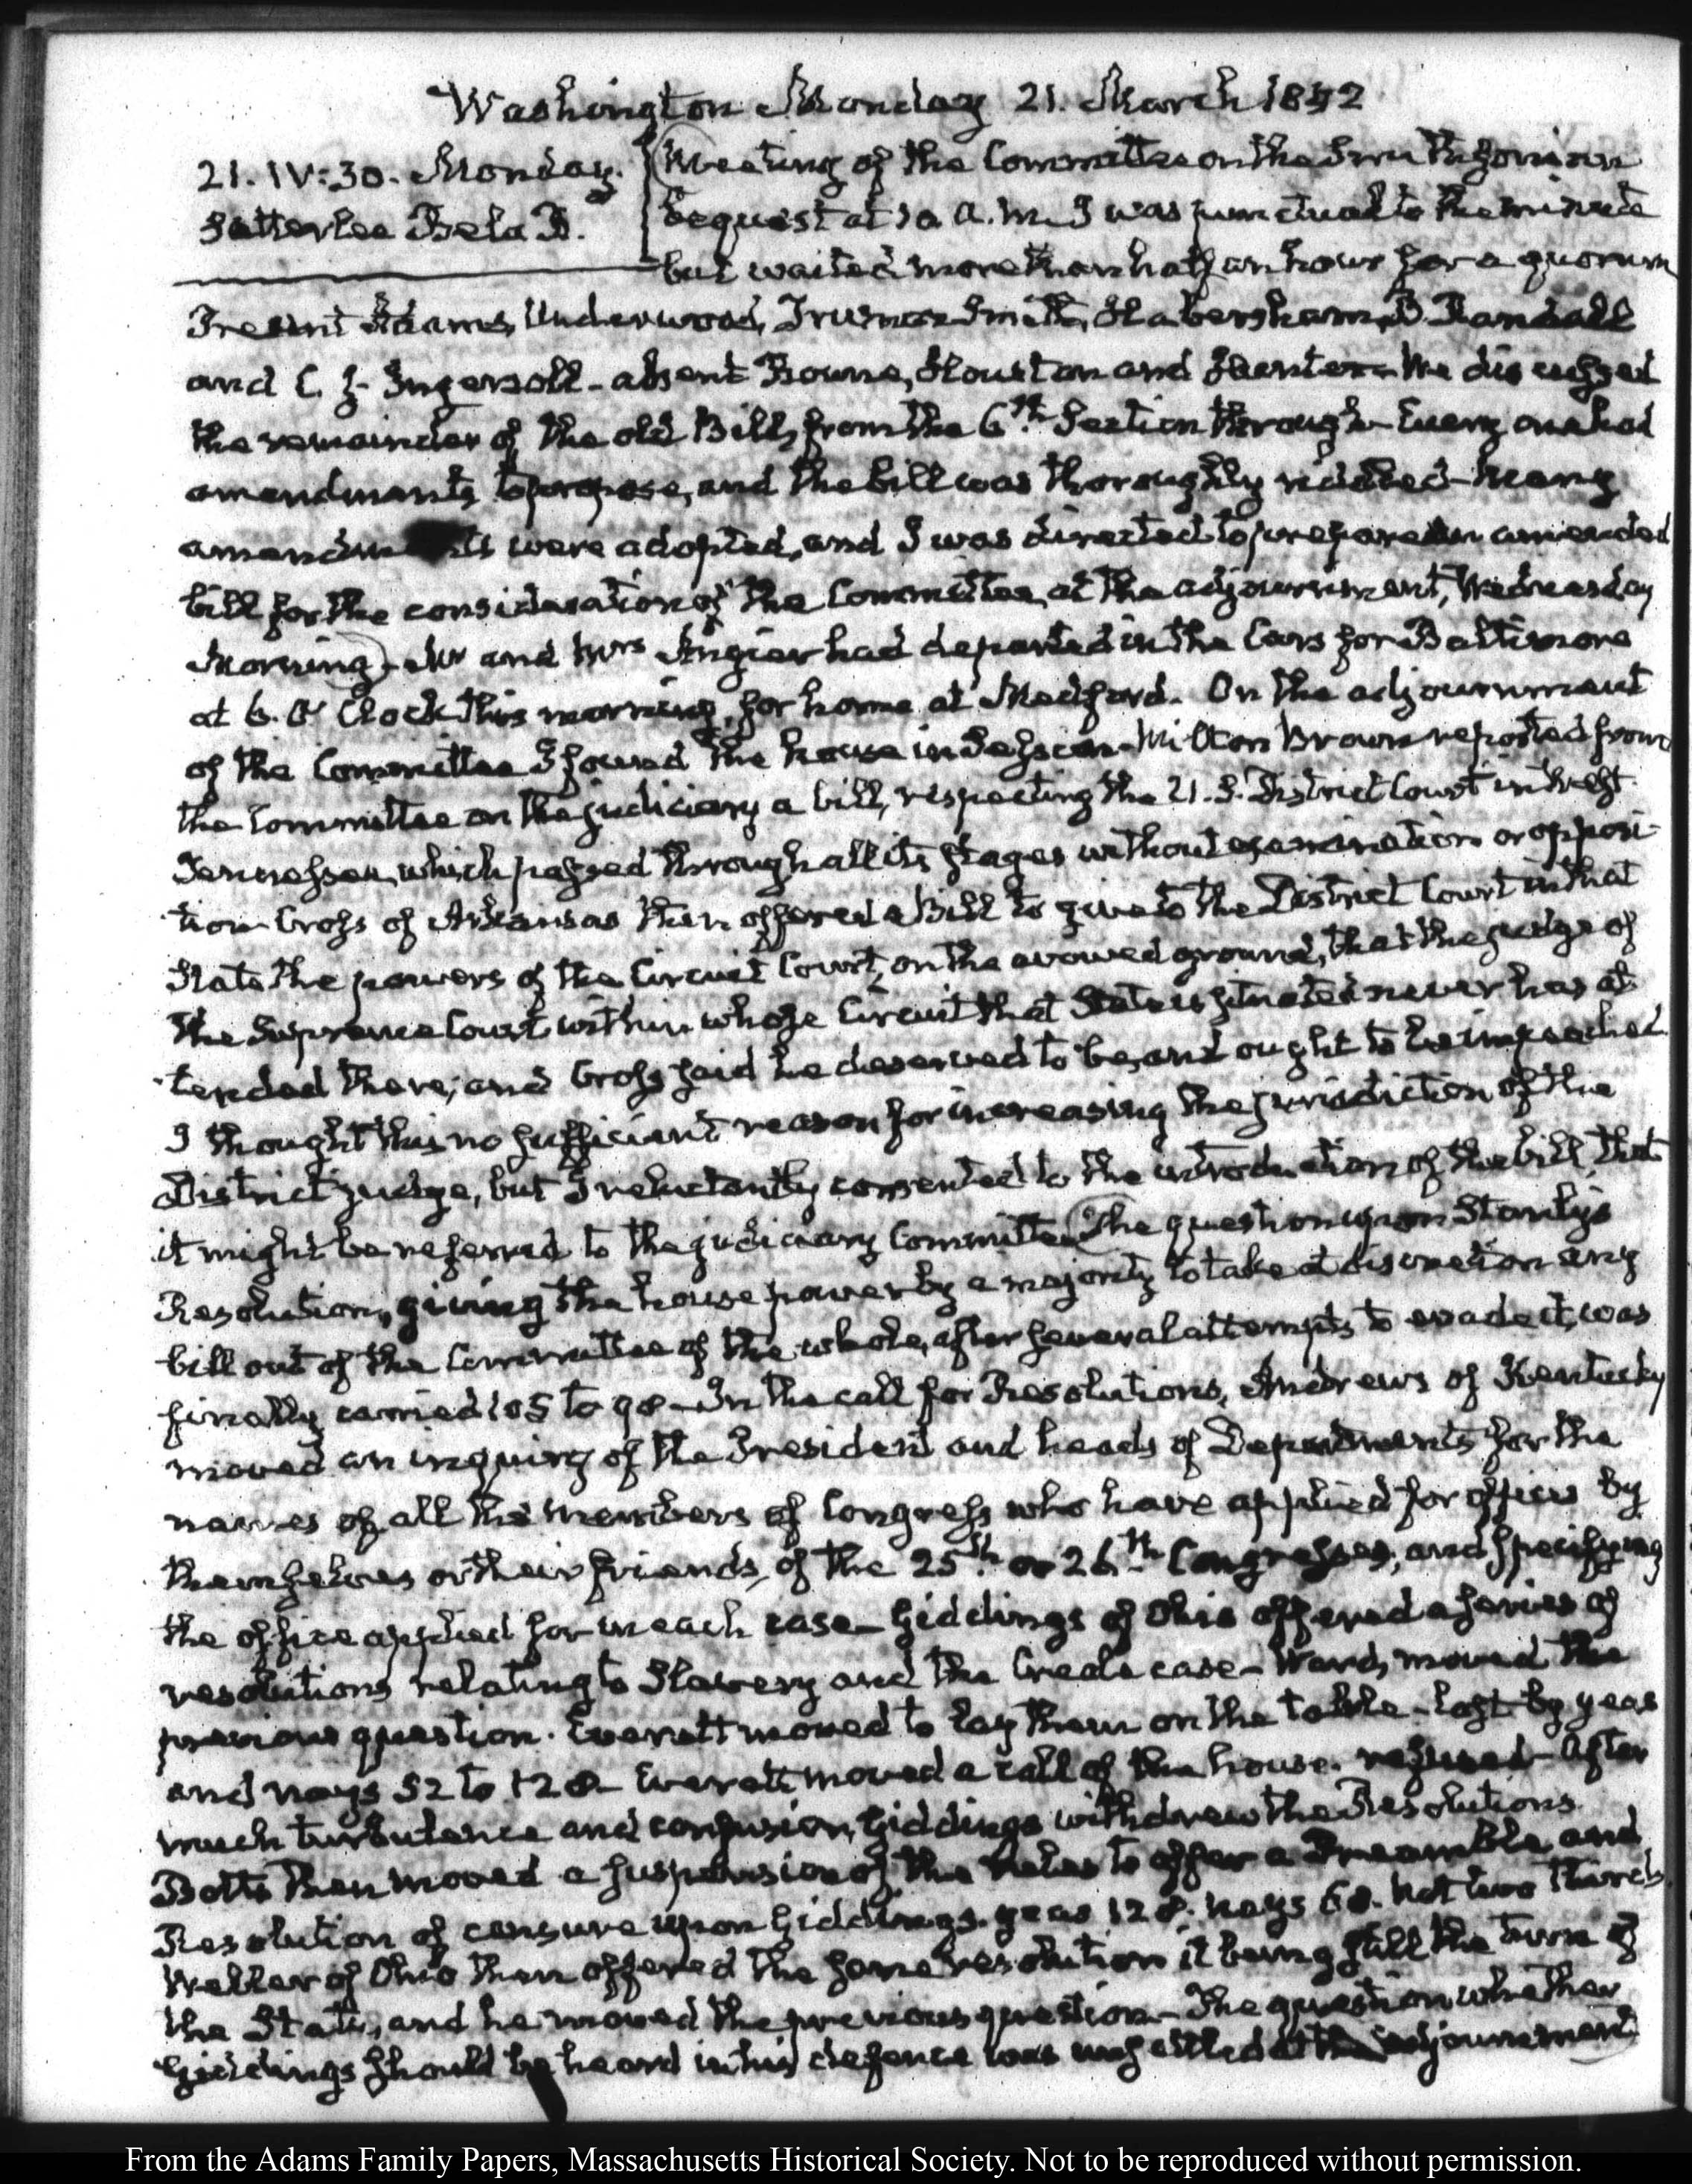 Washington Monday 21. March 1842
21. IV:30. Monday.
Satterlee Bela B.
Meeting of the Committee on the Smithsonian
bequest at 10 a.m. I was punctual to the minute
but waited more than half an hour for a quorum
Present Adams, Underwood, Truman Smith, Habersham, B. Randall
and C. J. Ingersoll - absent Bowne, Houston and Hunter - We discussed
the remainder of the old Bill, from the 6th Section through - Every one had
amendments to propose, and the bill was thoroughly - Many
amendments were adopted, and I was directed to prepare an amended
bill for the consideration of the Committee, at the adjournment, Wednesday
Morning) - Mr and Mrs Angier had departed in the Cars for Baltimore
at 6. O' Clock this morning, for home at Medford. On the adjournment
of the Committee I found the house in Session - Milton Brown reported from
the Committee on the judiciary a bill, respecting the U.S. District Court in West
Tennessee, which passed through all its stages without examination or opposi-
tion - Cross of Arkansas then offered a Bill to give to the District Court in that
State the powers of the Circuit Court, on the avowed ground, that the judge of
the Supreme Court within whose Circuit that State is situated never has at-
tended there; and Cross said he deserved to be, and ought to be impeached
I thought this no sufficient reason for increasing the jurisdiction of the
District judge, but I reluctantly consented to the introduction of the bill, that
it might be referred to the judiciary Committee (The question upon Stanly's
Resolution, giving the house power by a majority to take at discretion any
bill out of the Committee of the whole, after several attempts to evade it, was
finally carried 105 to 98 - In the call for Resolutions, Andrews of Kentucky
moved an inquiry of the President and heads of Departments for the
names of all the members of Congress who have applied for offices by
themselves or their friends, of the 25th. or 26th. Congresses, and specifying
the office applied for in each case - Giddings of Ohio offered a series of
resolutions relating to Slavery and the Creole case - Ward, moved the
previous question. Everett moved to lay them on the table - lost by yeas
and nays 52 to 128 - Everett moved a call of the house. refused - After
much turbulence and confusion, Giddings withdrew the Resolutions.
Botts then moved a suspension of the Rules to offer a Preamble and
Resolution of censure upon Giddings. yeas 128. nays 68. not two thirds
Weller of Ohio then offered the same resolution it being still the turn of
the State, and he moved the previous question - The question whether
Giddings should be heard in his defence was unsettled at the adjournment)
From the Adams Family Papers, Massachusetts Historical Society. Not to be reproduced without permission.